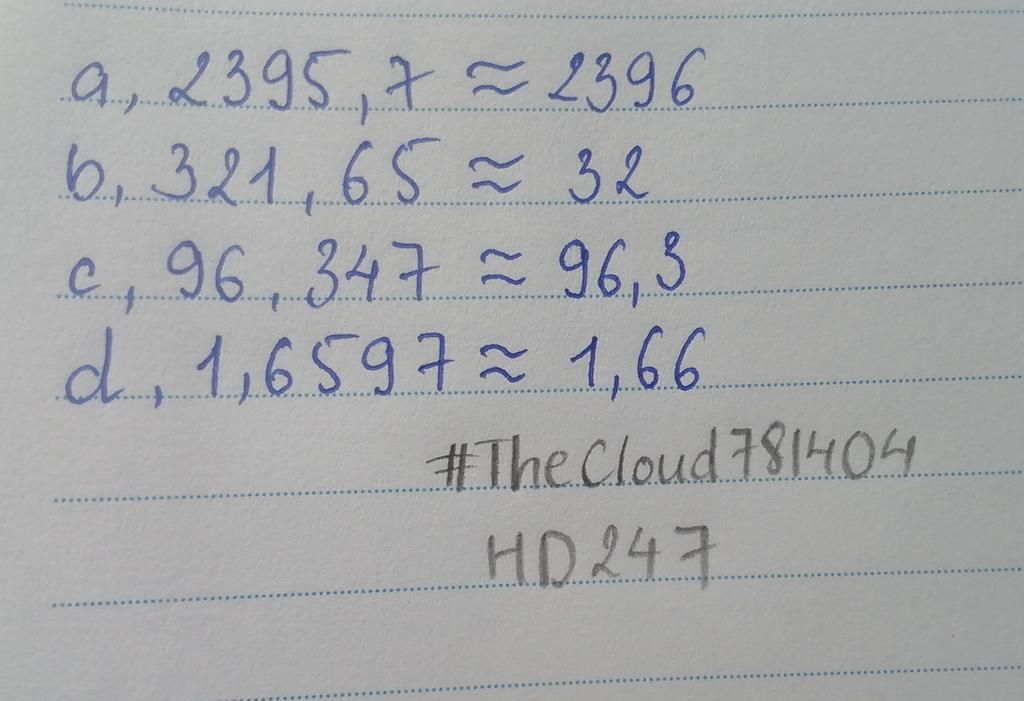 a, 2395,7 ≈ 2396
b, 321,65 ≈ 32
c, 96,347 ≈ 96,3
d, 1,6597 ≈ 1,66
#TheCloud781404
HD247